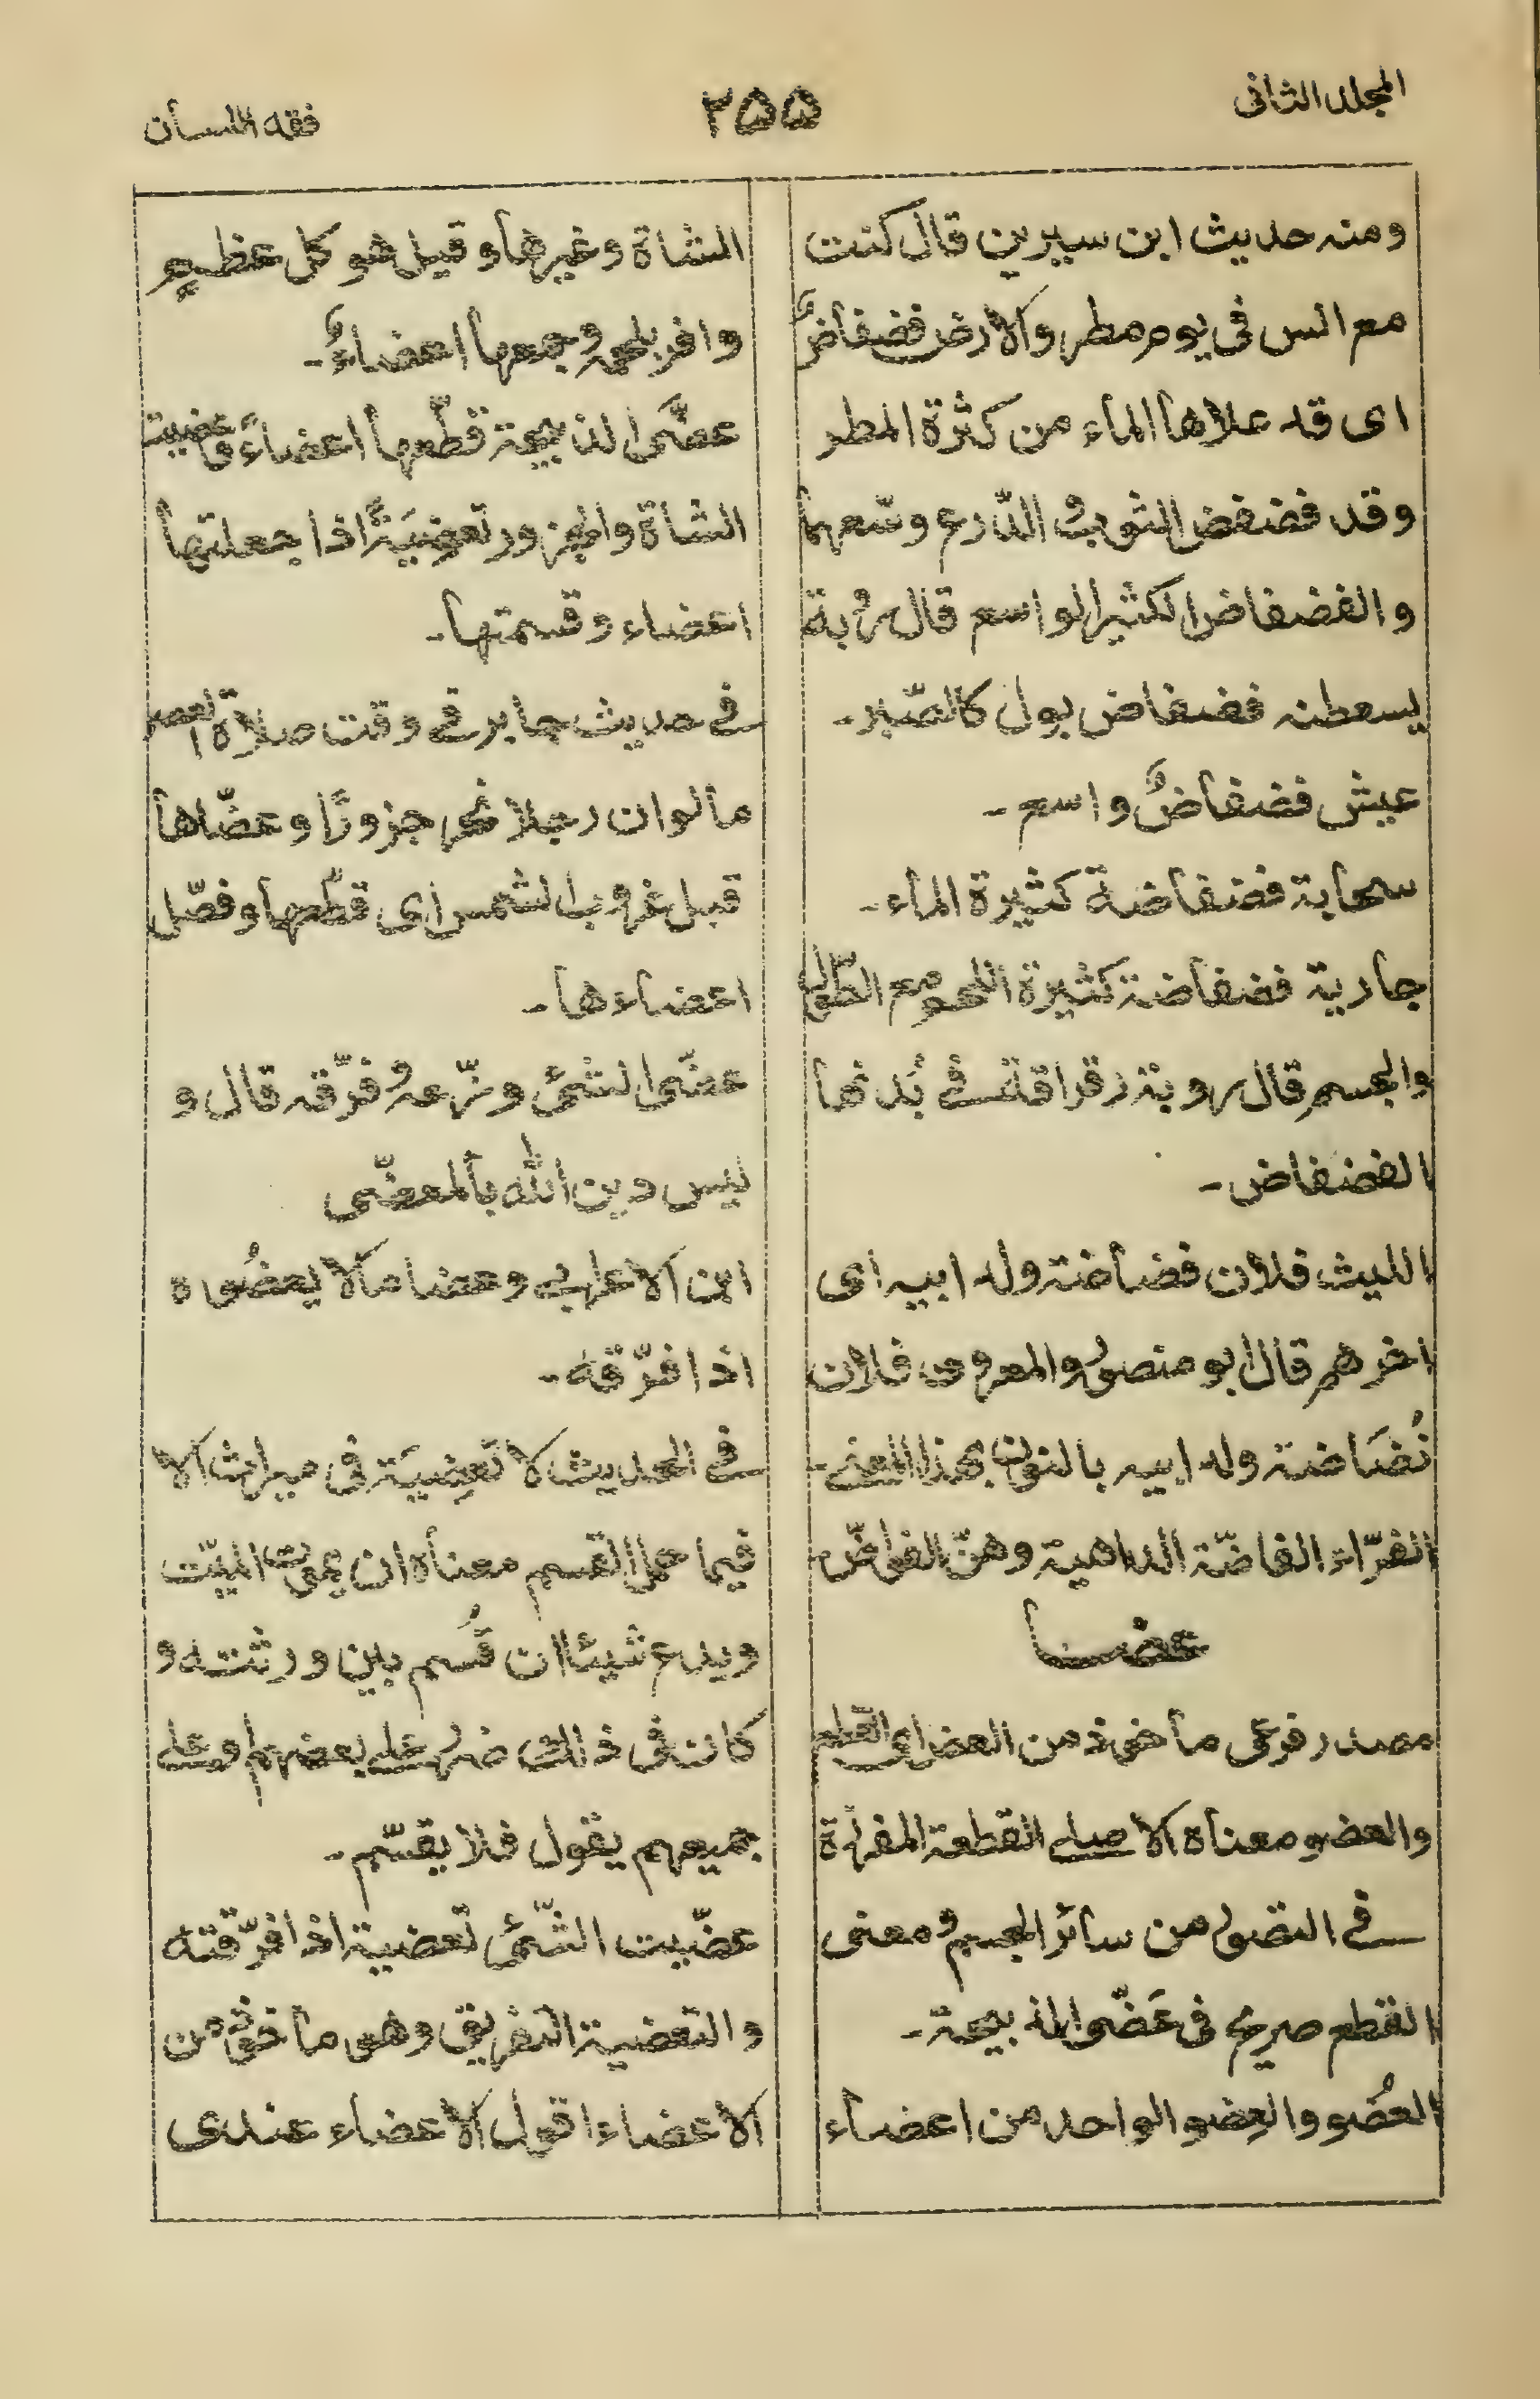 المجلد الثانی
٢٥٥
فقه اللسان
ومنه حدیث ابن سیرین قال کنت
مع انس فی یوم مطر والارض فضفاضٌ
ای قد علاها الماء من کثرة المطر
وقد فضفض الثوب والدّرع وسّعهما
والفضفاض الکثیر الواسع قال رؤبة
یسعطنه فضفاض بول کالصّبر۔
عیش فضفاضٌ واسع۔
سحابة فضفاضة کثیرة الماء۔
جاریة فضفاضة کثیرة اللحم مع الطّول
والجسم قال روبة رقراقة فے بُدنها
الفضفاض۔
اللیث فلان فضاضة ولد ابیه ای
اخرهم قال ابو منصور والمعروف فلان
نُضَاضة ولد ابیه بالنون بهذا المعنے۔
الفرّاء الفاضّة الداهیة وهنّ الفواضّ
عضا
مصدر فرعی ماخوذ من العض ای القطع
والعضو معناه الاصلے القطعة المفرزة
فے التصور من سائر الجسم ومعنی
القطع صریح فی عَضّی الذبیحة۔
العُضو والعِضو الواحد من اعضاء
الشاة وغیرها وقیل هو کل عظمٍ
وافر بلحمه وجمعها اعضاءٌ۔
عضَّی الذبیحة قطّعها اعضاءً وعضیت
الشاة والجزور تعضِیَةً اذا جعلتها
اعضاء وقسمتها۔
فے حدیث جابر فے وقت صلاة العصر
ما لو ان رجلا نحر جزورًا وعضّاها
قبل غروب الشمس ای قطّعها وفصّل
اعضاءها۔
عضّی الشیٔ وزّعه وفرّقه قال و
لیس دین الله بالمعضّی
ابن الاعرابی وعضا مالا یعضُوه
اذا فرّقه۔
فے الحدیث لا تَعضِیَة فی میراث الا
فیما حمل القسم معناه ان یموت المیّت
ویدع شیئا ان قُسم بین ورثته و
کان فی ذلک ضررٌ علے بعضهم او علے
جمیعهم یقول فلا یقسّم۔
عضّیت الشّیٔ تعضیة اذا فرّقته
والتعضیة التفریق وهو ماخوذ من
الاعضاء اقول الاعضاء عندی